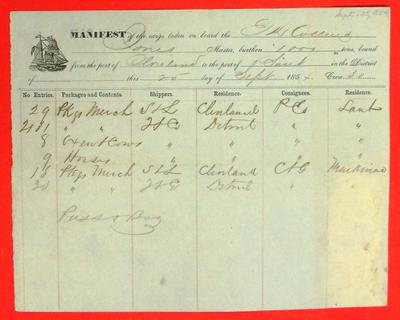 Sept. 25, 1854
MANIFEST of the cargo taken on board the E K Collins
Jones Master, burthen 1000 tons, bound
from the port of Cleveland to the port of Saut in the District
of this 25 day of Sept 1854. Crew
No. Entries. Packages and Contents. Shippers. Residence. Consignees. Residence.
29 Pkgs Merch S & L Cleveland P Co Saut
" " Detroit " "
8 Oxen & Cows " " "
9 Horses " " "
18 Pkgs Merch S & L Cleveland Mackinac
20 " " Detroit " "
Pass & Bag